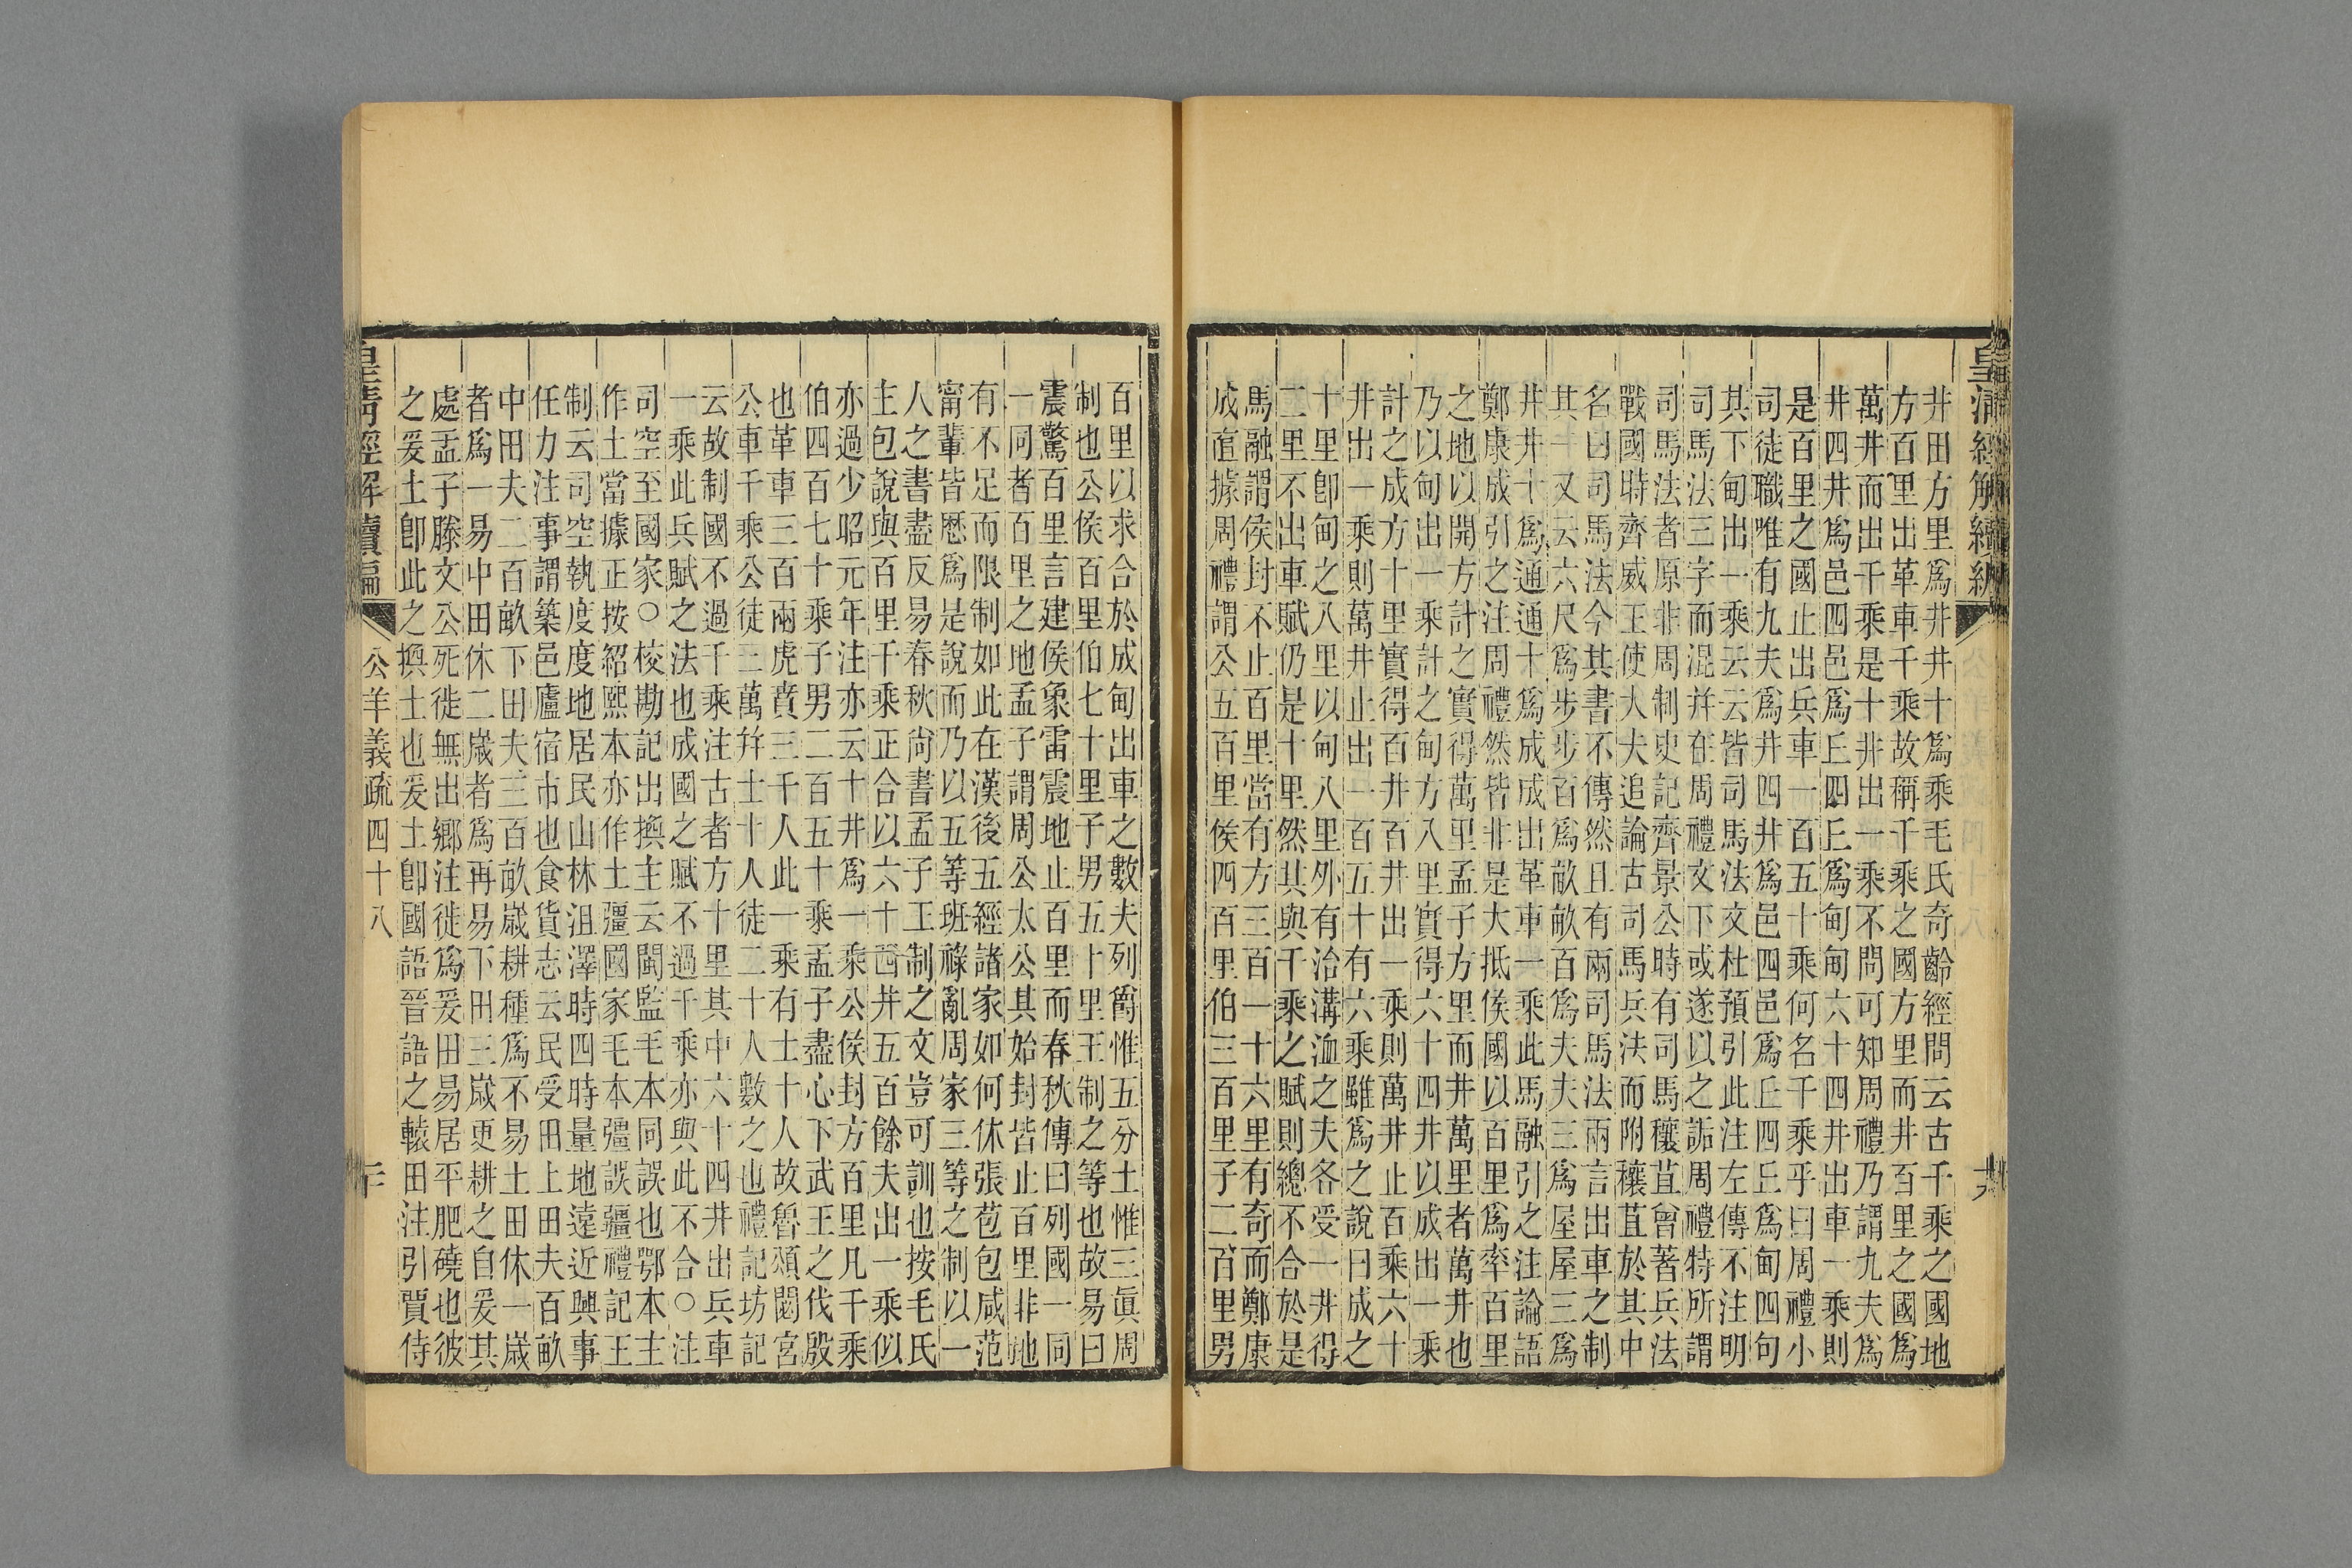 皇清經解續編
井田方里爲井井十爲乘毛氏奇齡經問云古千乘之國地
方百里出革車千乘故稱千乘之國方里而井百里之國爲
萬井而出千乘是十井出一乘不問可知周禮乃謂九夫爲
井四井爲邑四邑爲丘四丘爲甸甸六十四井出車一乘則
是百里之國止出兵車一百五十乘何名千乘乎曰周禮小
司徒職唯有九夫爲井四井爲邑四邑爲丘四丘爲甸四句
其下甸出一乘云云皆司馬法文杜預引此注左傳不注明
司馬法三字而混幷在周禮文下或遂以之詬周禮特所謂
司馬法者原非周制史記齊景公時有司馬穰苴曾著兵法
戰國時齊威王使大夫追論古司馬兵法而附穰苴於其中
名曰司馬法今其書不傳然且有兩司馬法兩言出車之制
其一又云六尺爲步步百爲畝畝百爲夫夫三爲屋屋三爲
井井十爲通通十爲成成出革車一乘此馬融引之注論語
鄭康成引之注周禮然皆非是大抵侯國以百里爲率百里
之地以開方計之實得萬里孟子方里而井萬里者萬井也
乃以甸出一乘計之甸方八里實得六十四井以成出一乘
計之成方十里實得百井百井出一乘則萬井止百乘六十
井出一乘則萬井止出一百五十有六乘雖爲之說曰成之
十里卽甸之八里以甸八里外有治溝洫之夫各受一井得
二里不出車賦仍是十里然其與千乘之賦則總不合於是
馬融謂侯封不止百里當有方三百一十六里有奇而鄭康
成直據周禮謂公五百里侯四百里伯三百里子二百里男
百里以求合於成甸出車之數夫列爵惟五分土惟三眞周
制也公侯百里伯七十里子男五十里王制之等也故易曰
震驚百里言建侯象雷震地止百里而春秋傳曰列國一同
一同者百里之地孟子謂周公太公其始封皆止百里非地
有不足而限制如此在漢後五經諸家如何休張苞包咸范
甯輩皆歷爲是說而乃以五等班祿亂周家三等之制以一
人之書盡反易春秋尙書孟子王制之文豈可訓也按毛氏
主包說與百里千乘正合以六十四井五百餘夫出一乘似
亦過少昭元年注亦云十井爲一乘公侯封方百里凡千乘
伯四百七十乘子男二百五十乘孟子盡心下武王之伐殷
也革車三百兩虎賁三千人此一乘有士十人故魯頌閟宮
公車千乘公徒三萬幷士十人徒二十人數之也禮記坊記
云故制國不過千乘注古者方十里其中六十四井出兵車
一乘此兵賦之法也成國之賦不過千乘亦與此不合○注
司空至國家○校勘記出換主云閩監毛本同誤也鄂本主
作土當據正按紹熙本亦作土疆國家毛本彊誤疆禮記王
制云司空執度度地居民山林沮澤時四時量地遠近興事
任力注事謂築邑廬宿市也食貨志云民受田上田夫百畝
中田夫二百畝下田夫三百畝歲耕種爲不易土田休一歲
者爲一易中田休二歲者爲再易下田三歲更耕之自爰其
處孟子滕文公死徙無出鄉注徙爲爰田易居平肥磽也彼
之爰土卽此之換土也爰土卽國語晉語之轅田注引賈侍
皇清經解續編 公羊義疏四十八